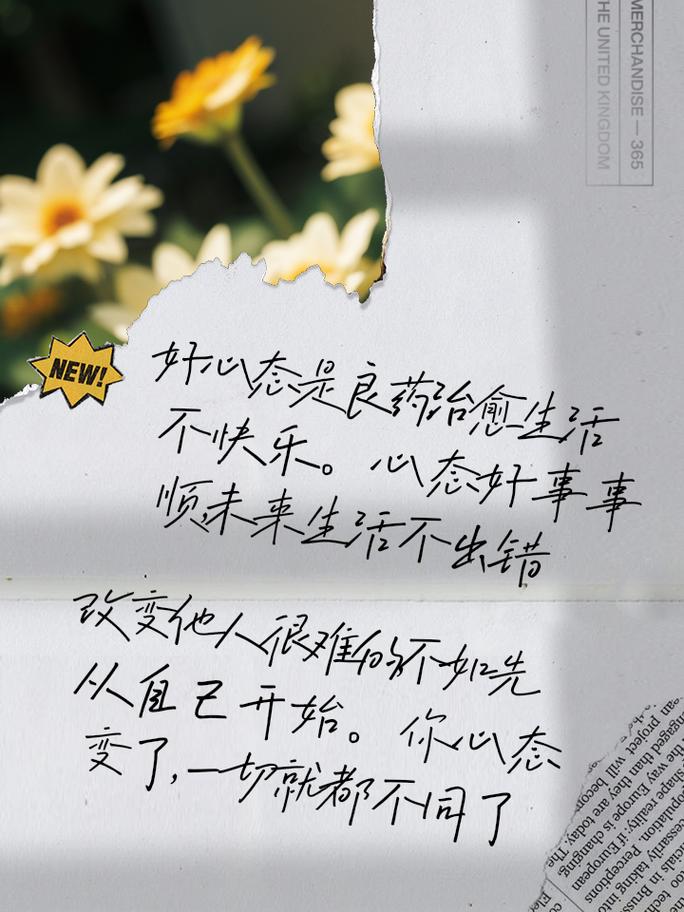 MERCHANDISE — 365
HE UNITED KINGDOM
NEW!
好心态是良药治愈生活
不快乐。心态好事事
顺,未来生活不出错
改变他人很难的不如先
从自己开始。你心态
变了,一切就都不同了
project will becom
ngaged than they are today. The
the way Europe is changing
shape reality: if European
opulation. Perceptions
cessarily taking into
icials in Bruss
too tech